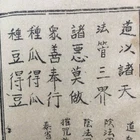 道以諸天
法管三界
諸惡莫做
眾善奉行
種瓜得瓜
種豆得豆